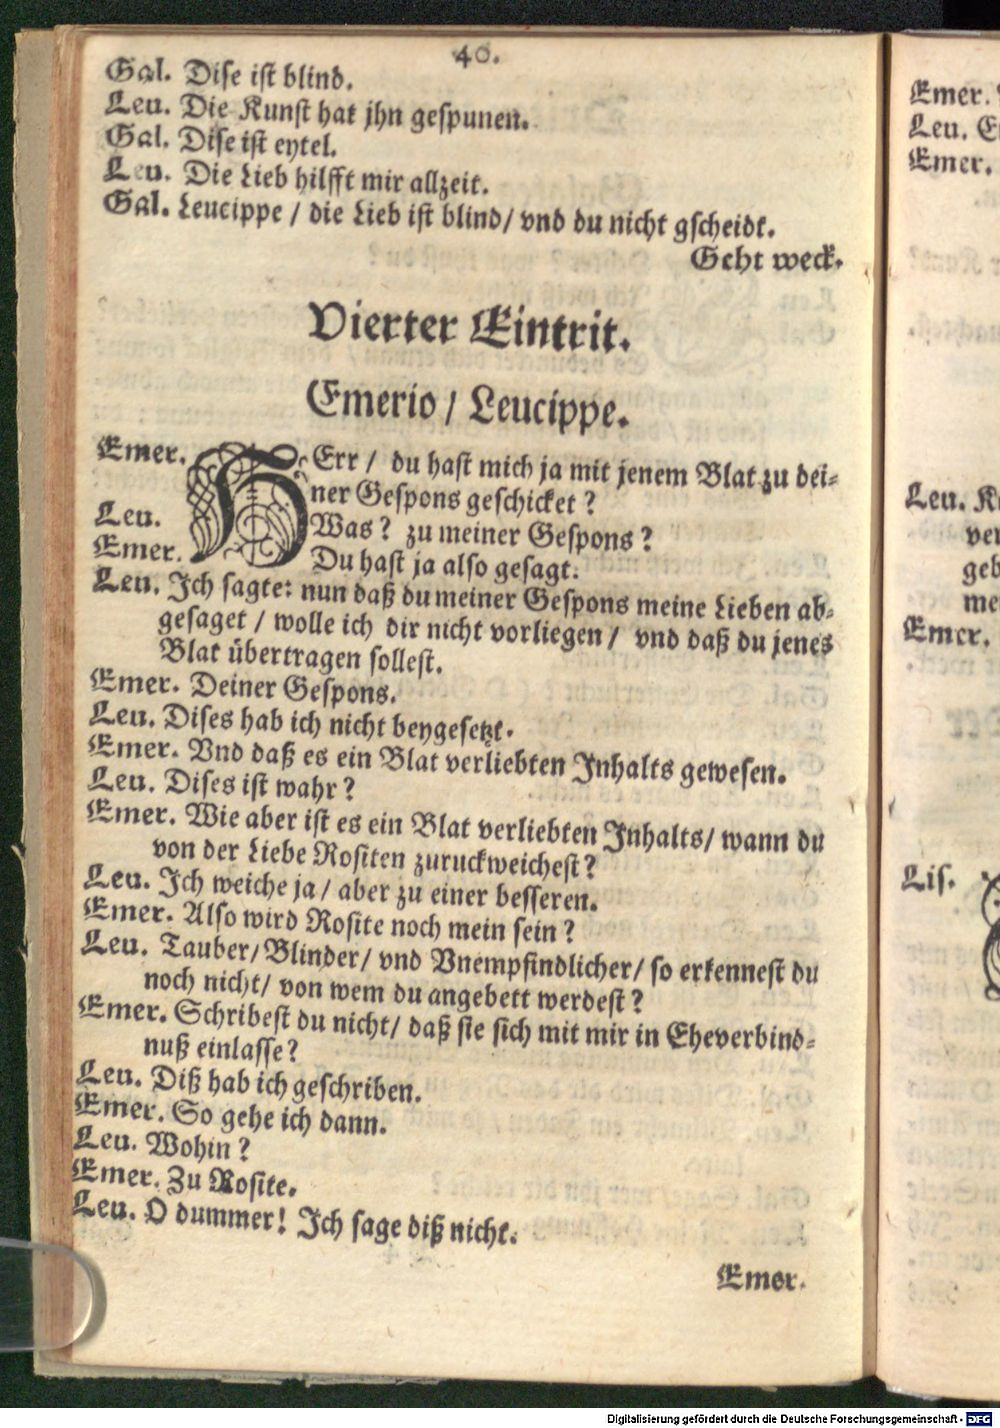 40.
Gal. Dise ist blind.
Leu. Die Kunst hat jhn gespunen.
Gal. Dise ist eytel.
Leu. Die Lieb hilfft mir allzeit.
Gal. Leucippe / die Lieb ist blind/ vnd du nicht gscheidt.
Geht weck.
Vierter Eintrit.
Emerio / Leucippe.
Emer. HErr / du hast mich ja mit jenem Blat zu dei-
ner Gespons geschicket ?
Leu. Was ? zu meiner Gespons ?
Emer. Du hast ja also gesagt.
Leu. Ich sagte: nun daß du meiner Gespons meine Lieben ab-
gesaget / wolle ich dir nicht vorliegen / vnd daß du jenes
Blat übertragen sollest.
Emer. Deiner Gespons.
Leu. Dises hab ich nicht beygesetzt.
Emer. Vnd daß es ein Blat verliebten Inhalts gewesen.
Leu. Dises ist wahr ?
Emer. Wie aber ist es ein Blat verliebten Inhalts/ wann du
von der Liebe Rositen zuruckweichest ?
Leu. Ich weiche ja / aber zu einer besseren.
Emer. Also wird Rosite noch mein sein ?
Leu. Tauber/ Blinder/ vnd Vnempfindlicher/ so erkennest du
noch nicht/ von wem du angebett werdest ?
Emer. Schribest du nicht/ daß sie sich mit mir in Eheverbind-
nuß einlasse ?
Leu. Diß hab ich geschriben.
Emer. So gehe ich dann.
Leu. Wohin ?
Emer. Zu Rosite.
Leu. O dummer! Ich sage diß nicht.
Emer.
Emer.
Leu.
Emer.
Leu.
Emer.
Lis.
Digitalisierung gefördert durch die Deutsche Forschungsgemeinschaft - DFG